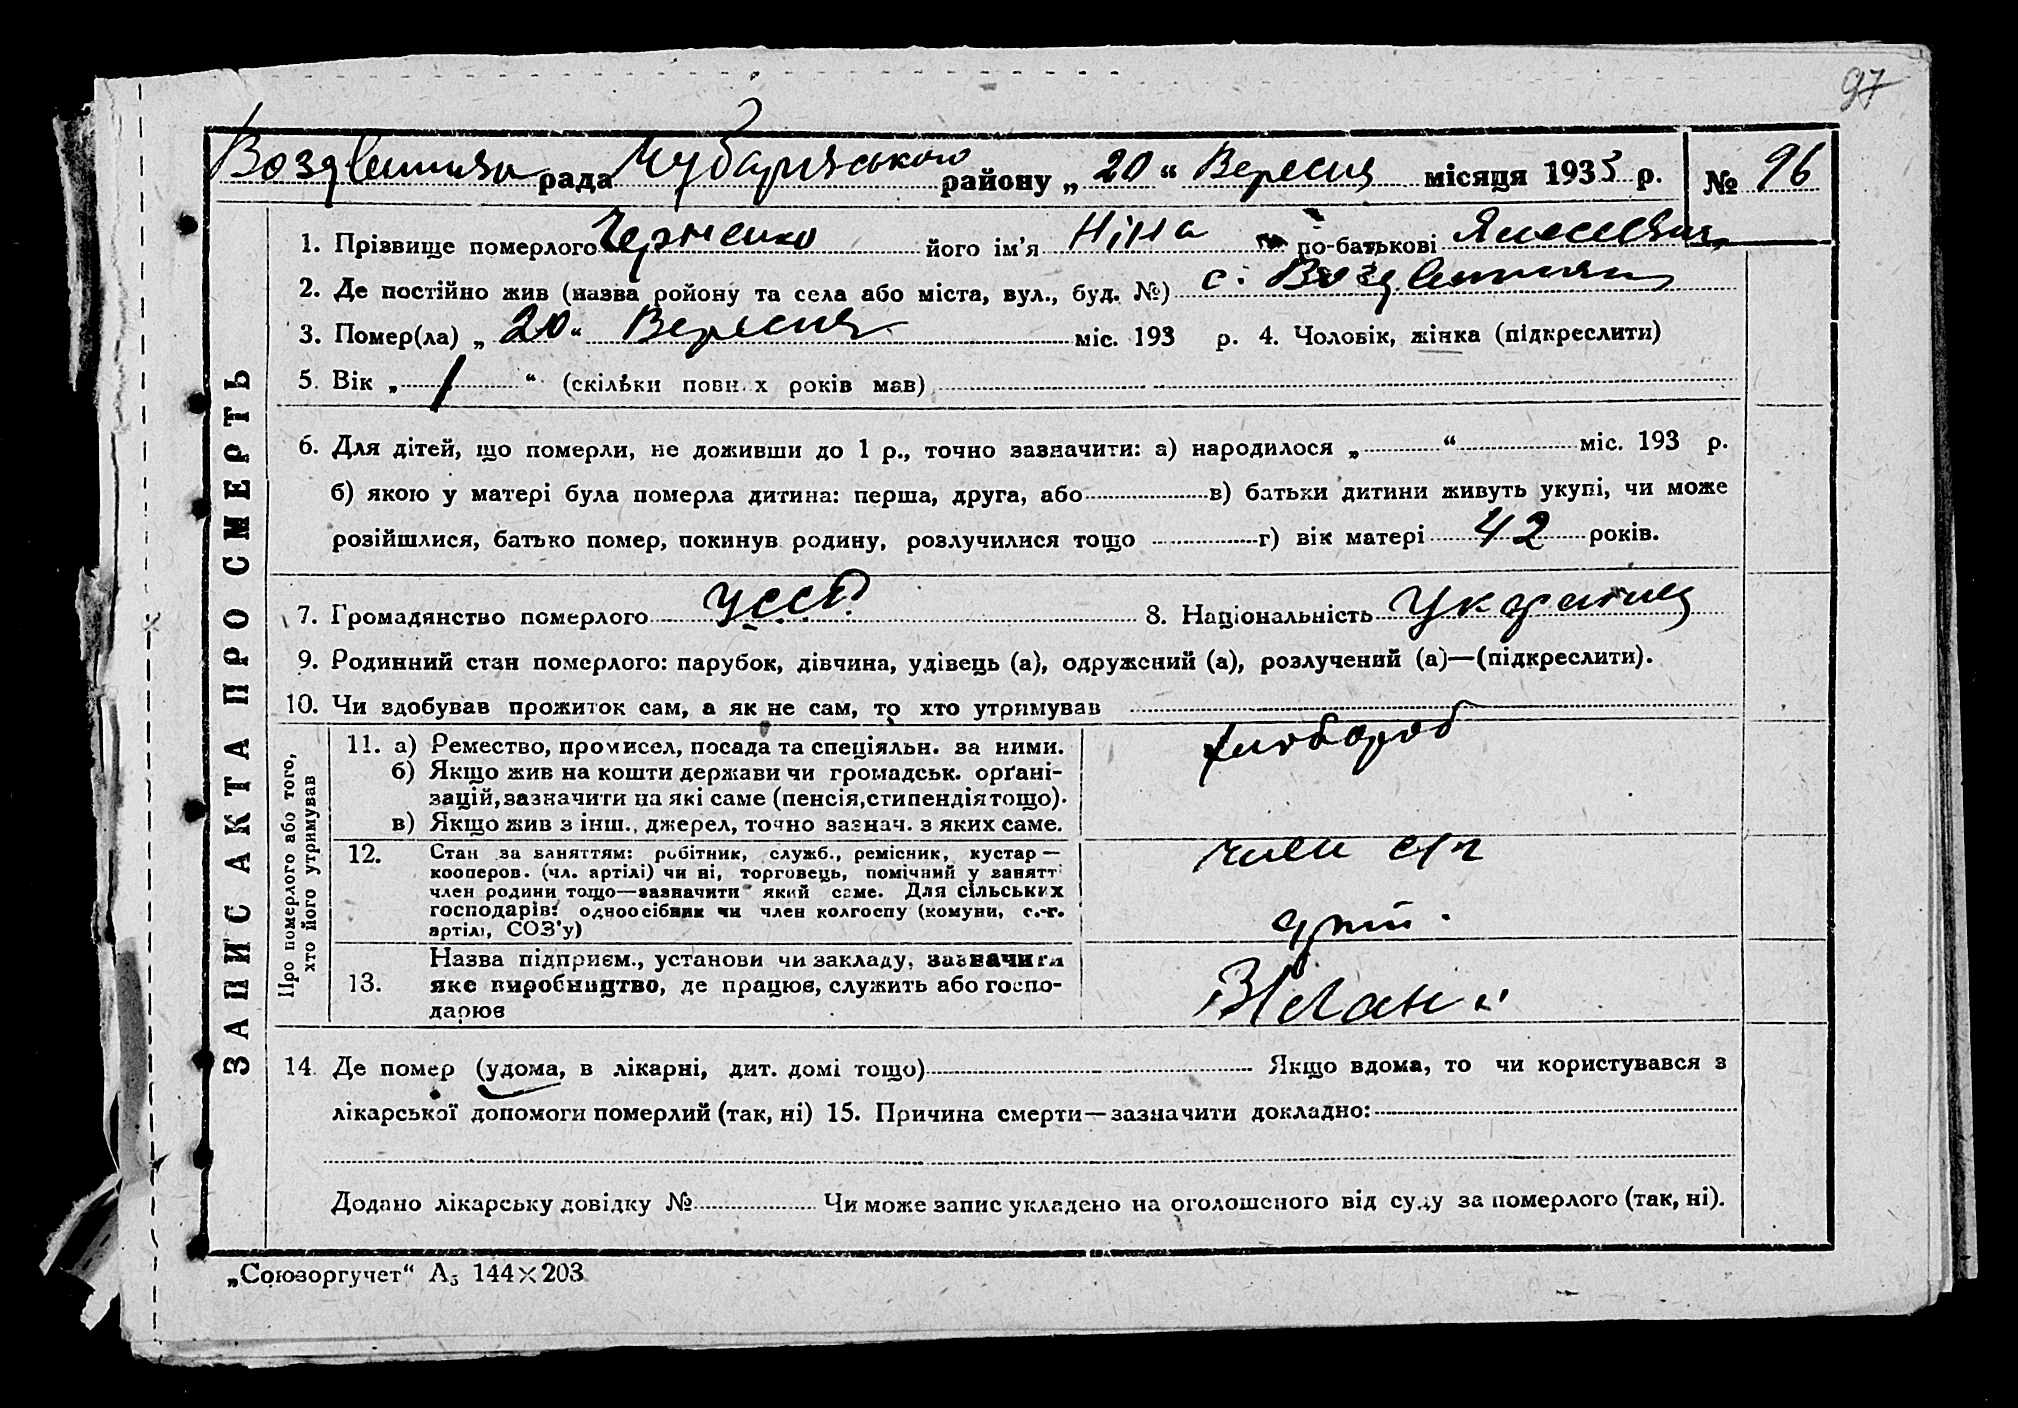 97
рада Чубарівського району „ 20 “ Вересня місяця 1933 р. № 96
ЗАПИС АКТА ПРО СМЕРТЬ
1. Прізвище померлого його ім'я Ніна по-батькові
2. Де постійно жив (назва ройону та села або міста, вул., буд. №) с.
3. Помер(ла) „ 20 “ Вересня міс. 193 р. 4. Чоловік, жінка (підкреслити)
5. Вік „ 1 “ (скільки повн.х років мав)
6. Для дітей, що померли, не доживши до 1 р., точно зазначити: а) народилося „ “ міс. 193 р.
б) якою у матері була померла дитина: перша, друга, або в) батьки дитини живуть укупі, чи може
розійшлися, батько помер, покинув родину, розлучилися тощо г) вік матері 42 років.
7. Громадянство померлого УССР. 8. Національність Украинец
9. Родинний стан померлого: парубок, дівчина, удівець (а), одружений (а), розлучений (а)—(підкреслити).
10. Чи здобував прожиток сам, а як не сам, то хто утримував
Про померлого або того,
хто його утримував
11. а) Ремество, промисел, посада та спеціяльн. за ними.
б) Якщо жив на кошти держави чи громадськ. орґані-
зацій, зазначити на які саме (пенсія, стипендія тощо).
в) Якщо жив з інш., джерел, точно зазнач. з яких саме.
хлібороб
12. Стан за заняттям: робітник, служб., ремісник, кустар—
кооперов. (чл. артілі) чи ні, торговець, помічний у занятт
член родини тощо—зазначити який саме. Для сільських
господарів: одноосібник чи член колгоспу (комуни, с.-г.
артілі, СОЗ'у)
член с/г
арт.
13. Назва підприєм., установи чи закладу, зазначити
яке виробництво, де працює, служить або госпо-
дарює
14. Де помер (удома, в лікарні, дит. домі тощо) Якщо вдома, то чи користувався з
лікарської допомоги померлий (так, ні) 15. Причина смерти—зазначити докладно:
Додано лікарську довідку № Чи може запис укладено на оголошеного від суду за померлого (так, ні).
„Союзоргучет“ А₅ 144×203